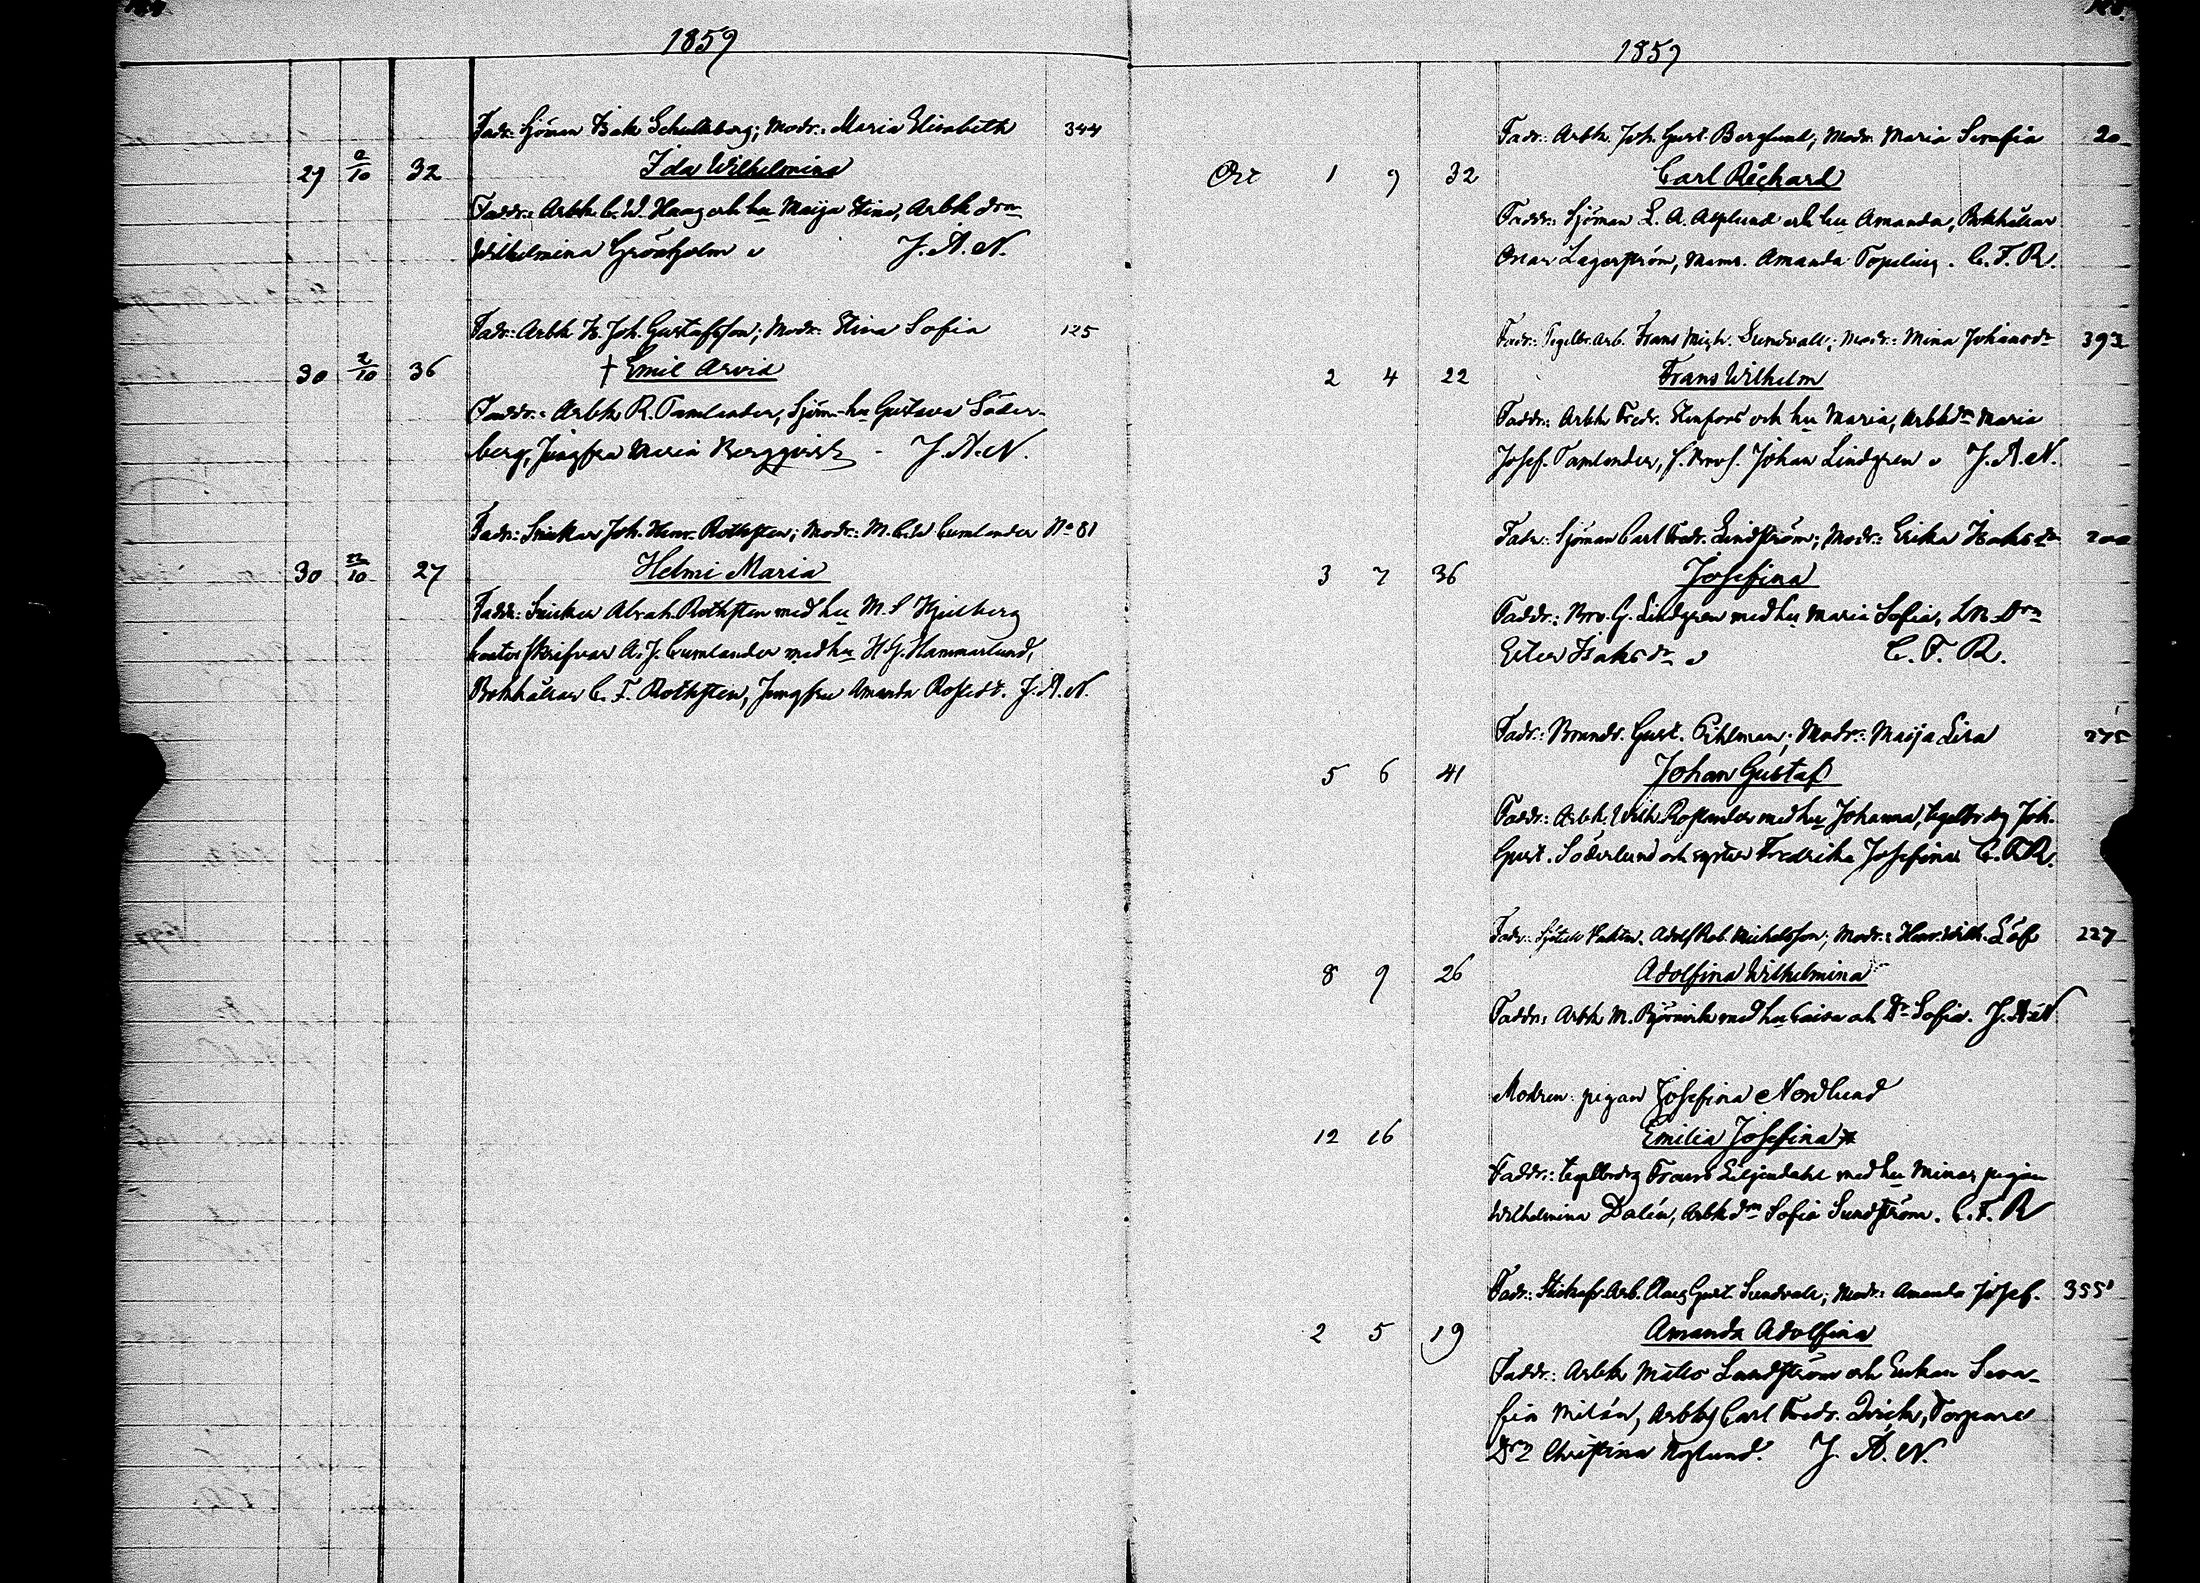 1859
Fadr: Sjöman Isak Schultzberg; Modr: Maria Elisabeth 344
29 2/10 32 Ida Wilhelmina
Faddr: Arbk. C. W. Haag och hu Maija Stina, Arbk drn
Wilhelmina Grönholm J. A. N.
Fadr: Arbk Is. Joh. Gustafsson; Modr: Stina Sofia 125
30 2/10 36 † Emil Arvid
Faddr: Arbk R. Tamlander, Sjöm-hu Gustava Söder-
berg, Jungfru Maria Bergqvist - J. A. N.
Fadr: Snickar Joh. Henr. Rothsten; Modr: M. C. W Cumlander No 81
30 22/10 27 Helmi Maria
Faddr: Snickar Abrah. Rothsten med hu M. S Hjelberg
skrifvar A. J. Cumlander med hu H G. Hammarlund,
Bokhållar C. F. Rothsten, Jungfru Amanda Rosted. J. A. N.
1859
Fadr: Arbk. Joh. Gust. Berglund; Modr: Maria Serafia 20
Oct 1 9 32 Carl Richard
Faddr: Sjöman L. A. Asplund och hu Amanda, Bokhållar
Oscar Lagerström, Mams. Amanda Topelius. C. F. R.
Fadr: Tegelbr. Arb. Frans Mich. Sundvall; Modr: Mina Johansdr 392
2 4 22 Frans Wilhelm
Faddr: Arbk Fredr. Stenfors och hu Maria, Arbkdrn Maria
Josef. Tamlander, Johan Lindgren J. A. N.
Fadr: Sjöman Carl Fredr. Lindström; Modr: Erika Isaksdr 200
3 7 36 Josefina
Faddr: G. Lindgren med hu Maria Sofia,
Isaksdr C. F. R.
Fadr: Gust. Pihlman; Modr: Maija Lisa 275
5 6 41 Johan Gustaf
Faddr: Arbk. Wilh. Roslander med hu Johanna, Joh.
Gust. Söderlund och syster Fredrika Josefina C. F. R.
Fadr: Adolf Rob. Michelsson; Modr: Hen. Wilh. Löf 227
8 9 26 Adolfina Wilhelmina
Faddr: Arbk M. Björnvik med hu Caisa och Dr Sofia. J. A. N
Modren: pigan Josefina Nordlund
12 16 Emilia Josefina
Faddr: Frans Liljendahl med hu Mina, pigan
Wilhelmina Dalén, Arbk drn Sofia Sundström. C. F. R
Fadr: Arb. Claes Gust. Sundvall; Modr: Amanda Josef. 355
2 5 19 Amanda Adolfina
Faddr: Arbk Matts Sundström och Enkan Sera-
fia Milén, Carl Fredr. Torpare
Drn Christina Roslund. J. A. N.